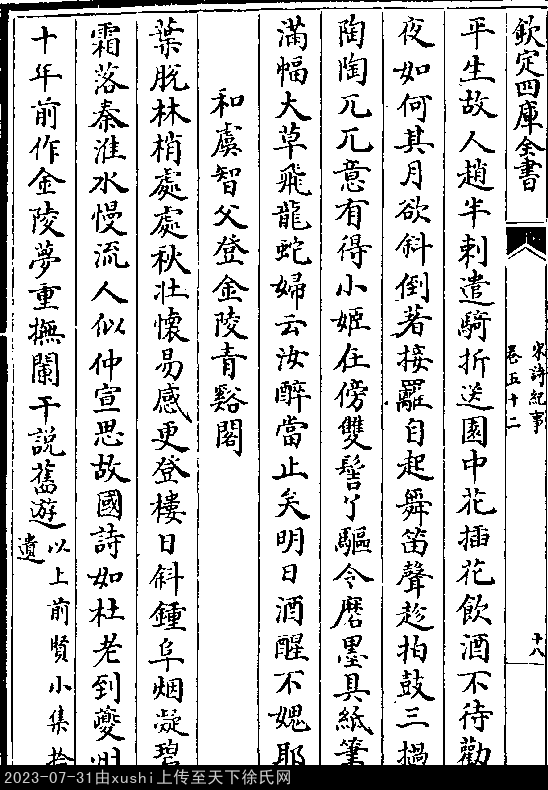 欽定四庫全書
宋詩紀事
卷五十二
十八
平生故人趙半刺遣騎折送園中花插花飲酒不待勸
夜如何其月欲斜倒著接䍦自起舞笛聲趁拍鼓三撾
陶陶兀兀意有得小姬在傍雙髻丫驅令磨墨具紙筆
滿幅大草飛龍蛇婦云汝醉當止矣明日酒醒不媿耶
和虞智父登金陵青谿閣
葉脫林梢處處秋壯懷易感更登樓日斜鍾阜烟凝碧
霜落秦淮水慢流人似仲宣思故國詩如杜老到夔州
十年前作金陵夢重撫闌干說舊遊
以上前賢小集拾
遺
2023-07-31由xushi上传至天下徐氏网